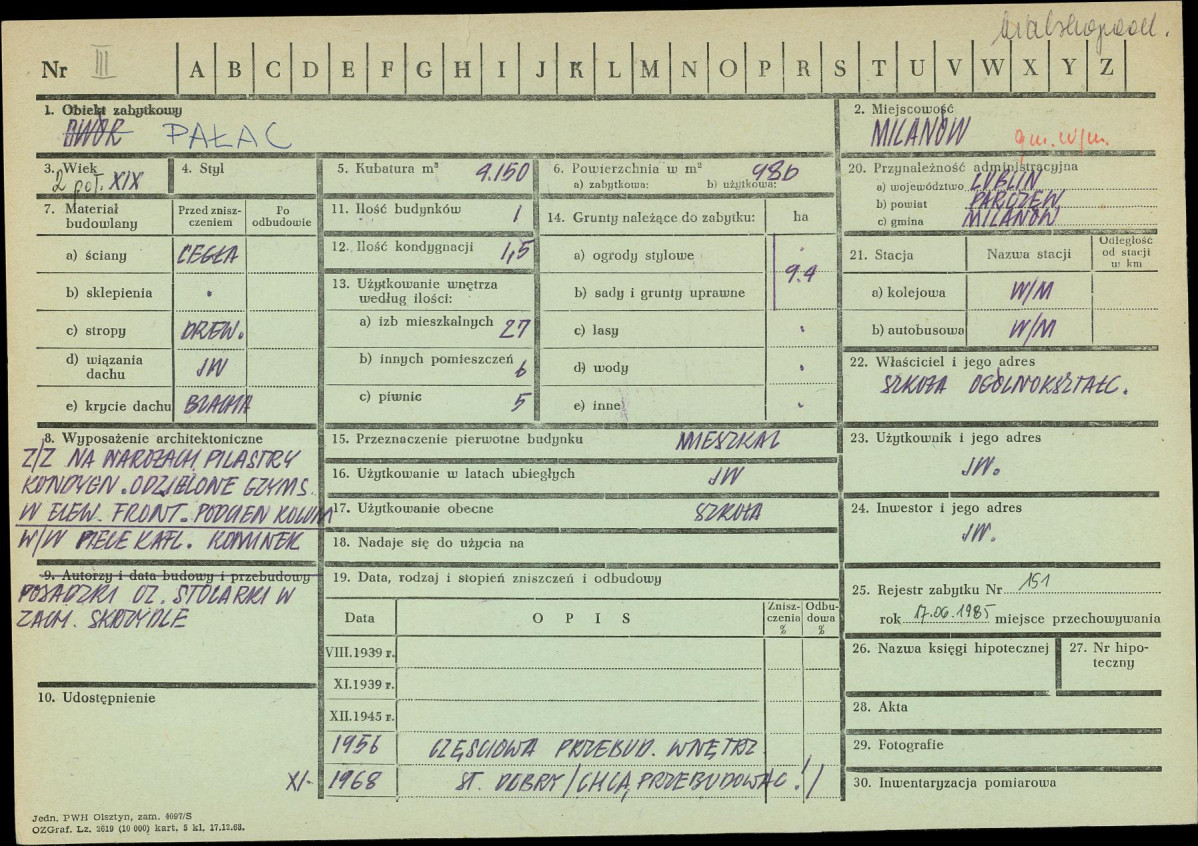 Nr III A B C D E F G H I J K L M N O P R S T U V W X Y Z
1. Obiekt zabytkowy
DWÓR PAŁAC
2. Miejscowość
MILANÓW gm. w/m.
3. Wiek
2 poł. XIX
4. Styl
5. Kubatura m³ 4.150
6. Powierzchnia w m² 986
a) zabytkowa: b) użytkowa:
7. Materiał budowlany
Przed znisz-
czeniem
Po
odbudowie
a) ściany CEGŁA
b) sklepienia •
c) stropy DREW.
d) wiązania
dachu JW
e) krycie dachu BLACHA
8. Wyposażenie architektoniczne
Z/Z NA NAROŻACH PILASTRY
KONDYGN. ODZIELONE GZYMS.
W ELEW. FRONT. PODCIEŃ KOLUM
W/W PIECE KAFL. KOMINEK
9. Autorzy i data budowy i przebudowy
POSADZKI OZ. STOLARKI W
ZACH. SKRZYDLE
10. Udostępnienie
11. Ilość budynków 1
12. Ilość kondygnacji 1,5
13. Użytkowanie wnętrza
według ilości:
a) izb mieszkalnych 27
b) innych pomieszczeń 6
c) piwnic 5
14. Grunty należące do zabytku: ha
a) ogrody stylowe
9.4
b) sady i grunty uprawne
c) lasy
d) wody
e) inne
15. Przeznaczenie pierwotne budynku MIESZKAL
16. Użytkowanie w latach ubiegłych JW
17. Użytkowanie obecne SZKOŁA
18. Nadaje się do użycia na
19. Data, rodzaj i stopień zniszczeń i odbudowy
Data O P I S Znisz-
czenia
% Odbu-
dowa
%
VIII.1939 r.
XI.1939 r.
XII.1945 r.
1956 CZĘŚCIOWA PRZEBUD. WNĘTRZ
XI- 1968 ST. DOBRY /CHCĄ PRZEBUDOWAĆ!/
20. Przynależność administracyjna
a) województwo LUBLIN
b) powiat PARCZEW
c) gmina MILANÓW
21. Stacja Nazwa stacji Odległość
od stacji
w km
a) kolejowa W/M
b) autobusowa W/M
22. Właściciel i jego adres
SZKOŁA OGÓLNOKSZTAŁC.
23. Użytkownik i jego adres
JW.
24. Inwestor i jego adres
JW.
25. Rejestr zabytku Nr 151
rok 17.06.1985 miejsce przechowywania
26. Nazwa księgi hipotecznej
27. Nr hipo-
teczny
28. Akta
29. Fotografie
30. Inwentaryzacja pomiarowa
Jedn. PWH Olsztyn, zam. 4097/S
OZGraf. Lz. 3619 (10 000) kart. 5 kl. 17.12.68.